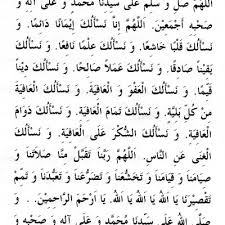 اللهم صل و سلم على سيدنا محمد و على آله و
صَحْبِهِ أَجْمَعِيْنَ. اَللّٰهُمَّ إِنَّا نَسْأَلُكَ إِيْمَانًا دَائِمًا. وَ
نَسْأَلُكَ قَلْبًا خَاشِعًا. وَ نَسْأَلُكَ عِلْمًا نَافِعًا. وَ نَسْأَلُكَ
يَقِيْنًا صَادِقًا. وَ نَسْأَلُكَ عَمَلًا صَالِحًا. وَ نَسْأَلُكَ دِيْنًا
قَيِّمًا. وَ نَسْأَلُكَ الْعَفْوَ وَ الْعَافِيَةَ. وَ نَسْأَلُكَ الْعَافِيَةَ
مِنْ كُلِّ بَلِيَّةٍ. وَ نَسْأَلُكَ تَمَامَ الْعَافِيَةِ. وَ نَسْأَلُكَ دَوَامَ
الْعَافِيَةِ. وَ نَسْأَلُكَ الشُّكْرَ عَلَى الْعَافِيَةِ. وَ نَسْأَلُكَ
الْغِنَى عَنِ النَّاسِ. اَللّٰهُمَّ رَبَّنَا تَقَبَّلْ مِنَّا صَلَاتَنَا وَ
صِيَامَنَا وَ قِيَامَنَا وَ تَخَشُّعَنَا وَ تَضَرُّعَنَا وَ تَعَبُّدَنَا وَ تَمِّمْ
تَقْصِيْرَنَا يَا اَللهُ يَا اَللهُ يَا اَللهُ. يَا أَرْحَمَ الرَّاحِمِيْنَ. وَ
صلى الله على سيدنا محمد و على آله و صحبه و